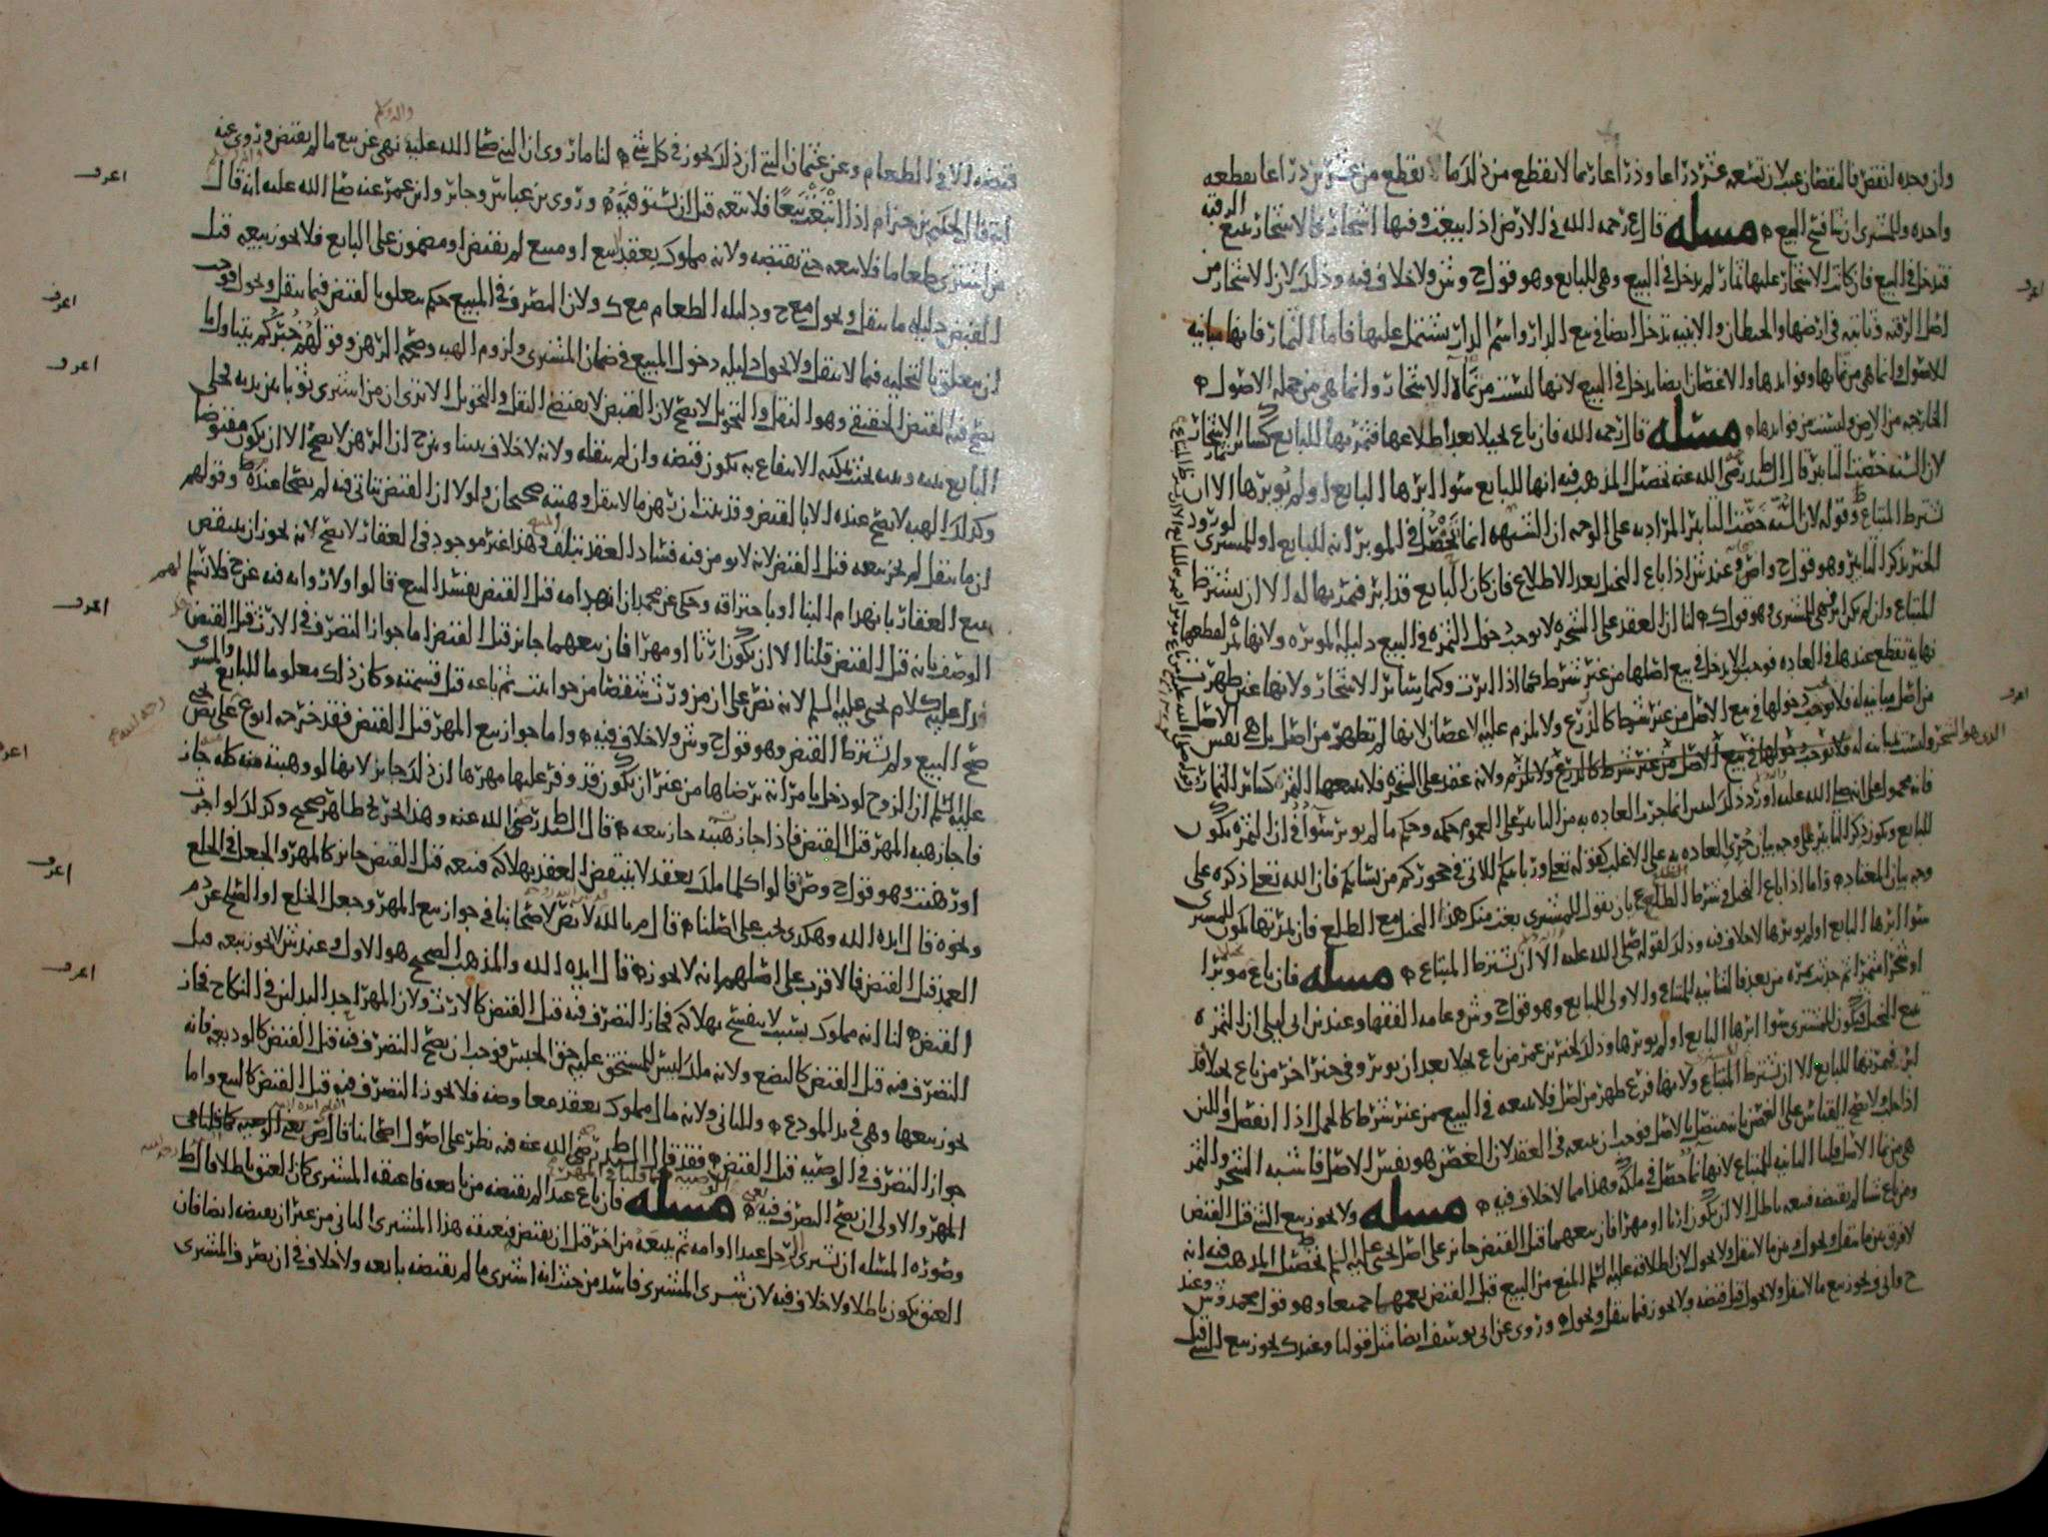 وان وجده انقص فالنقصان عيب لان تسعه عشر ذراعا وذراعا ربما لا يقطع من ذلك ما يقطع من عشرين ذراعا بقطعه
واحده وللمشتري ان يفسخ البيع مسله قال ع رحمه الله في الارض اذا بيعت وفيها اشجار فالاشجار تتبع الرقبه
فتدخل في البيع فان كانت الاشجار عليها ثمار لم يدخل في البيع وهي للبايع وهو قول ح وش ولا خلاف فيه وذلك لان الاشجار من
اصل الرقبه وثابته في ارضها والحيطان والابنيه تدخل ايضا في بيع الدار واسم الدار يشتمل عليها فاما الثمار فانها مباينه
للاصول وانما هي من نمايها وفوايدها والاغصان ايضا يدخل في البيع لانها ليست من نماء الاشجار وانما هي من جمله الاصول
الخارجه من الارض وليست من فوايدها مسله قال رحمه الله فان باع نخيلا بعد اطلاعها فثمرتها للبايع كساير الاشجار
لان السنه خصت التابير قال السيد ط رضي الله عنه تحصيل المذهب فيه انها للبايع سوا ابرها البايع او لم يوبرها الا ان
يشترط المبتاع وقوله لان السنه خصت التابير المراد به على الوجه ان الشبهه انما تحصل في الموبر انه للبايع او للمشتري لورود
الخبر بذكر التابير وهو قول ح واص وعند ش اذا باع النخل بعد الاطلاع فان كان البايع قد ابر فثمرتها له الا ان يشترط
المبتاع وان لم يكن ابر فهي للمشتري وهو قول ك لنا ان العقد على الشجره لا يوجب دخول الثمره في البيع دليله الموبره ولانها ثمره لقطعها
نهايه تقطع عندها في العاده فوجب الا يدخل في بيع اصلها من غير شرط كما اذا ابرت وكما في ساير الاشجار ولانها عين ظهرت
من اصل مباينه له فلا يوجب دخولها في بيع الاصل من غير شرط كالزرع ولا يلزم عليه الاغصان لانها لم تظهر من اصل بل هي نفس الاصل
الذي هو الشجر وليست مباينه له فلا يوجب دخولها في بيع الاصل من غير شرط كالزرع ولا يلزم ولانه عقد على الشجره فلا يتبعها الثمر كساير الثمار
للبايع ويكون ذكر التابير على وجه بيان جري العاده به على الاغلب كقوله تعلى وربايبكم اللاتي في حجوركم من نسايكم فان الله تعلى ذكره على
وجه بيان المعتاد واما اذا باع النخل في شرط الطلع بان يقول للمشتري بعت منك هذا النخل مع الطلع فان ثمرتها تكون للمشتري
سوا ابرها البايع او لم يوبرها لا خلاف فيه وذلك لقوله صلى الله عليه الا ان يشترط المبتاع مسله فان باع موبرا
او شجرا مثمرا ثم حدثت ثمره من بعد فالثانيه للمبتاع والاولى للبايع وهو قول ح وش وعامه الفقها وعند بن ابي ليلى ان الثمره
تتبع النخل فتكون للمشتري سوا ابرها البايع او لم يوبرها وذلك لخبر بن عمر من باع نخيلا بعد ان يوبر وفي خبر اخر من باع نخيلا قد
ابر فثمرتها للبايع الا ان يشترط المبتاع ولانها فرع ظهر من اصل فلا يتبعه في البيع من غير شرط كالحمل اذا انفصل واللبن
اذا حلب ولا يصح القياس على الغصن بانه متصل بالاصل فوجب ان يتبعه في العقد لان الغصن هو نفس الاصل فاشبه الشجر والثمر
هي من نما الاصل قلنا الثانيه للمبتاع لانها نما حصل في ملكه وهذا مما لا خلاف فيه مسله ولا يجوز بيع الشي قبل القبض
ومن باع شيا لم يقبضه فبيعه باطل الا ان يكون ارثا او مهرا فان بيعهما قبل القبض جايز على اصل يحيى عليه السلم تحصيل المذهب فيه انه
لا فرق بين ما ينقل ويحول وبين ما لا ينقل ولا يحول لان اطلاقه عليه السلم المنع من البيع قبل القبض يعمهما جميعا وهو قول محمد وش وعند
ح وابي يوسف يجوز بيع ما لا ينقل ولا يحول قبل قبضه ولا يجوز فيما ينقل ويحول وروي عن ابي يوسف ايضا مثل قولنا وعند ك يجوز بيع الشي قبل
قبضه الا في الطعام وعن عثمان البتي ان ذلك يجوز في كل شي لنا ما روي ان النبي صلى الله عليه نهى عن بيع ما لم يقبض وروي عنه
انه قال لحكيم بن حزام اذا ابتعت بيعا فلا تبعه قبل ان تستوفيه وروى بن عباس وجابر وابن عمر عنه صلى الله عليه انه قال
من اشترى طعاما فلا يبعه حتى يقبضه ولانه مملوك بعقد البيع او مبيع لم يقبض او مضمون على البايع فلا يجوز بيعه قبل
القبض دليله ما ينقل ويحول مع ح ودليله الطعام مع ك ولان التصرف في المبيع حكم يتعلق بالقبض فيما ينقل ويحول فوجب
ان يتعلق بالتخليه فيما لا ينقل ولا يحول دليله دخول المبيع في ضمان المشتري ولزوم الهبه وصحه الرهن وقولهم خبركم يتناول ما
يصح فيه القبض الحقيقي وهو النقل والتحويل لا يصح لان القبض لا يقتضي النقل والتحويل الا ترى ان من اشترى ثوبا بين يديه يخلي
البايع بينه وبينه بحيث يمكنه الانتفاع به يكون قبضه وان لم ينقله ولانه لا خلاف بيننا وبين ح ان الرهن لا يصح الا ان يكون مقبوضا
وكذلك الهبه لا تصح عنده الا بالقبض وقد ثبت ان رهن ما لا ينقل وهبته صحيحان ولولا ان القبض يتاتى فيه لم يصحا عنده وقولهم
ان ما ينقل لم يجز بيعه قبل القبض لانه لا يومن فيه فساد العقد بتلف المبيع وهذا غير موجود في العقار لا يصح لانه يجوز ان ينتقض
بيع العقار بانهدام البنا او باحتراقه وحكي عن محمد ان انهدامه قبل القبض يفسد البيع قالوا ولا روايه فيه عن ح فلا نسلم لهم
الوصف بانه قبل القبض قلنا الا ان يكون ارثا او مهرا فان بيعهما جايز قبل القبض اما جواز التصرف في الارث قبل القبض
فدل عليه كلام يحيى عليه السلم لانه نص على ان من ورث شقصا من حوانيت ثم باعه قبل قسمته وكان ذلك معلوما للبايع والمشتري
صح البيع ولم يشترط القبض وهو قول ح وش ولا خلاف فيه واما جواز بيع المهر قبل القبض فقد خرجه ابو ع على نص يحيى
عليه السلم ان الزوج لو دخل بامراته برضاها من غير ان يكون قد وفر عليها مهرها ان ذلك جايز لانها لو وهبته منه كله جاز
فاجاز هبه المهر قبل القبض فاذا جاز هبته جاز بيعه قال السيد ط رضي الله عنه وهذا التخريج ظاهر صحيح وكذلك لو اجرت
او رهنت وهو قول ح وص قالوا كلما ملك بعقد لا ينتقض العقد بهلاكه فبيعه قبل القبض جايز كالمهر والجعل في الخلع
ونحوه قال ايده الله وهكذى يجب على اصلنا قال م بالله لا نص لاصحابنا في جواز بيع المهر وجعل الخلع او الصلح عن دم
العمد قبل القبض فالاقرب على اصلهم انه لا يجوز قال ايده الله والمذهب الصحيح هو الاول وعند ش لا يجوز بيعه قبل
القبض لنا انه مملوك بسبب لا ينفسخ بهلاكه فجاز التصرف فيه قبل القبض كالارث ولان المهر احد البدلين في النكاح فجاز
التصرف فيه قبل القبض كالبضع ولانه ملك ليس للمستحق عليه حق الحبس فوجب ان يصح التصرف فيه قبل القبض كالوديعه فانه
يجوز بيعها وهي في يد المودع وللثاني ولانه مال مملوك بعقد معاوضه فلا يجوز التصرف فيه قبل القبض كالبيع واما
جواز التصرف في الوصيه قبل القبض فقد قال السيد ط رضي الله عنه فيه نظر على اصول اصحابنا قال ص يعني الوصيه كما قلنا في
المهر والاولى ان يصح التصرف فيه مسله فان باع عبدا لم يقبضه من بايعه فاعتقه المشتري كان العتق باطلا قال ط
وصوره المسله ان يشتري الرجل عبدا او امه ثم يبيعه من اخر قبل ان يقبض فيعتقه هذا المشتري الثاني من غير ان يقبضه ايضا فان
العتق يكون باطلا ولا خلاف فيه لان شرى المشتري فاسد من حيث انه اشترى ما لم يقبضه بايعه ولا خلاف في ان تصرف المشتري